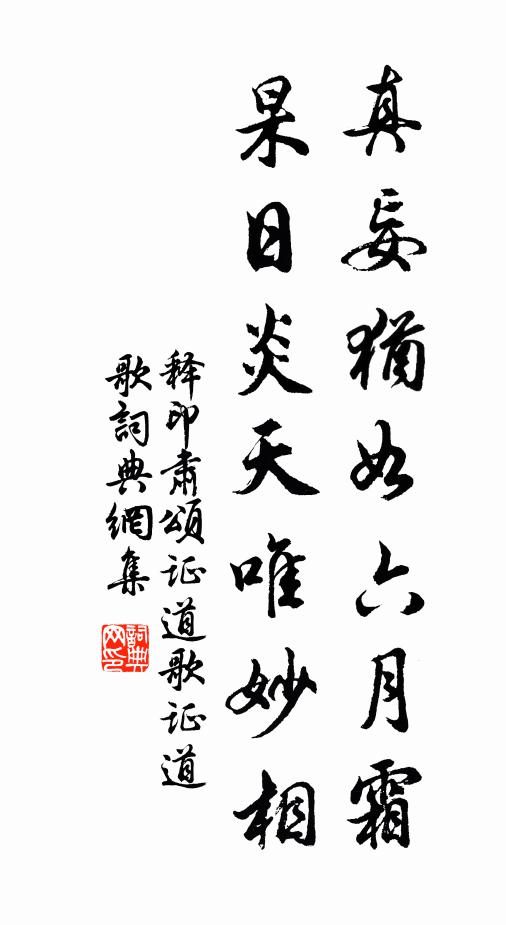 真妄猶如六月霜
杲日炎天唯妙相
释印肅頌证道歌证道
歌詞典網集
詞典
网印